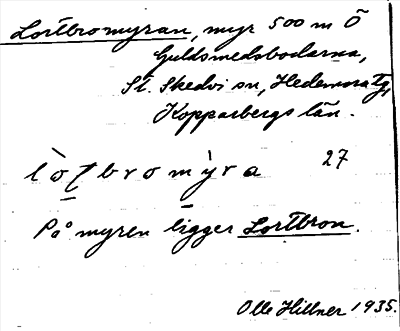 Lortbromyran, myr 500 m Ö
Guldsmedsbodarna,
St. Skedvi sn, Hedemora tg,
Kopparbergs län.
lòʈbromỳra 27
På myren ligger Lortbron.
Olle Hillner 1935.